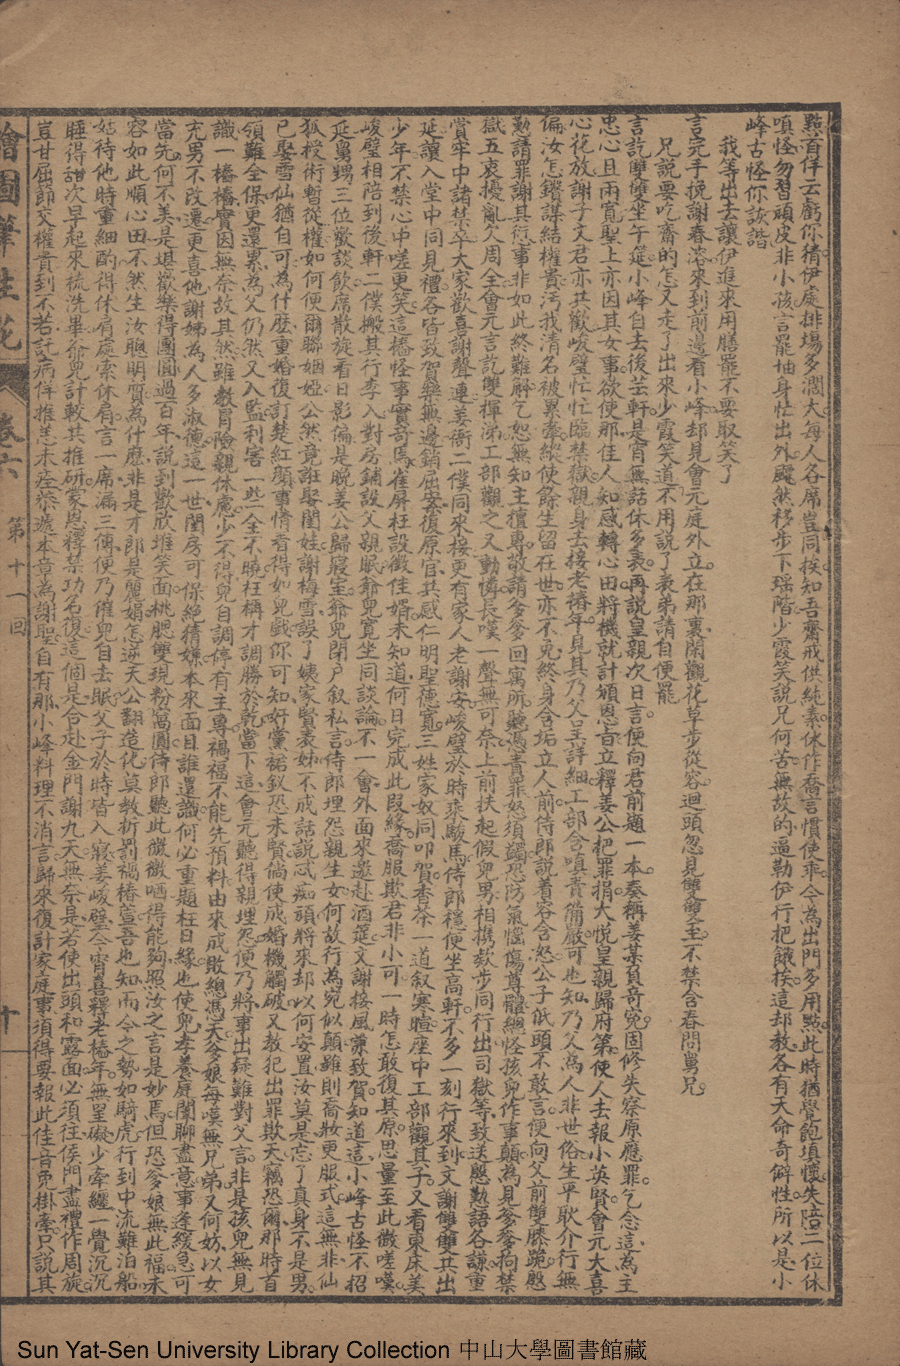 點首佯云虧你猜伊處排場多濶大每人各席豈同挨知吾齋戒供純素休作喬言慣使乖今為出門多用點此時猶覺飽填懷失陪二位休
嗔怪勿習頑皮非小孩言罷抽身忙出外飄然移步下瑶階少霞笑說兄何苦無故的逼勒伊行把饋挨這却教各有天命奇僻性所以是小
峰古怪你詼諧
我等出去讓伊進來用膳罷不要取笑了
言完手挽謝春溶來到前邊看小峰却見會元庭外立在那裏閑觀花草步從容迴頭忽見雙雙至不禁含春問舅兄
兄說要吃齋的怎又走了出來少霞笑道不用說了表弟請自便罷
言訖雙雙坐午筵小峰自去後芸軒是宵無話休多表再說皇親次日言便向君前題一本奏稱姜某負奇寃固修失察原應罪乞念這為主
忠心且兩寛聖上亦因其女事欲使那佳人知感轉心田將機就計頒恩旨立釋姜公把罪捐大悅皇親歸府第便人去報小英賢會元大喜
心花放謝子文君亦共歡峻璧忙忙臨禁獄親身去接老椿年見其乃父呈詳細工部含嗔責備嚴可也知乃父為人非世俗生平耿介行無
偏汝怎鑽謀結權貴污我清名被累牽縱使餘生留在世亦不免終身含垢立人前侍郎說着容含怒公子低頭不敢言便向父前雙膝跪慇
懃請罪謝其衍事非如此終難解乞恕無知主擅專敬請爹爹回寓所聽憑責罪怒須蠲恐防氣惱傷尊體總怪孩兒作事顛為見爹爹拘禁
獄五衷擾亂欠周全會元言訖雙揮涕工部觀之又動憐長嘆一聲無可奈上前扶起假兒男相携欵步同行出司獄等致送慇懃語各謙重
賞牢中諸禁卒大家歡喜謝聲連姜衙二僕同來接更有家人老謝安峻璧於時乘駿馬侍郎穩便坐高軒不多一刻行來到文謝雙雙共出
延讓入堂中同見禮各皆致賀樂無邊銷屈案復原官共感仁明聖德寛三姓家奴同叩賀杳茶一道叙寒暄座中工部觀其子又看東床美
少年不禁心中嗟更笑這樁怪事實奇馬雀屏枉設徵佳婿未知道何日完成此段緣喬服欺君非小可一時怎敢復其原思量至此微嗟嘆
峻璧相陪到後軒二僕搬其行李入對房鋪設父親眠爺兒寛坐同談論不一會外面來邀赴酒筵文謝接風兼致賀知道這小峰古怪不招
延舅甥三位歡談飲席散旋看日影偏是晚姜公歸寢室爺兒閉户叙私言侍郎埋怨親生女何故行為宛似顛雖則喬妝更服式這無非仙
狐授術暫從權如何便爾聯姻婭公然竟誑娶閨姓謝梅雪誤了姨家賢表姊不戒話說惑痴頭將來却以何安置汝莫是忘了真身不是男
已娶雪仙猶自可為什麽重婚復訂楚紅顏事情看得如兒戲你可知奸黨裙釵恐未賢倘使成婚機觸破又教犯出罪欺天竊恐爾那時首
領難全保更還累為父仍然又入監利害一些全不曉枉稱才調勝於乾當下這會元聽得親埋怨便乃將事出疑難對父言非是孩兒無見
識一樁樁實因無奈故其然雖教冒險親休慮少不得兒自調停有主專禍福不能先預料由來成敗總憑天爹娘每嘆無兄弟又何妨以女
充男不改遷更喜他謝姊為人多淑德這一世閨房可保絕猜嫌本來面目誰還識何必重題枉日緣也使兒孝養庭闈聊盡意事逢緩急可
當先何不美是堪歡樂得團圓過百年說到歡欣堆笑面桃腮雙現粉窩圓侍郎聽此微微哂得能夠照汝之言是妙馬但恐爹娘無此福未
容如此順心田不然生汝聰明質為什麽非是才郎是麗娟怎逆天公翻造化莫教折罰禍椿萱吾也知而今之勢如騎虎行到中流難泊船
姑待他時重細酌得休肩處索休肩言一席漏三傳便乃催兒自去眠父子於時皆入寢姜峻璧今宵喜釋老椿年無罣礙少牽纏一覺沉沉
睡得甜次早起來梳洗畢爺兒計較共推研蒙恩釋禁功名復這個是合赴金門謝九天無奈是若使出頭和露面必須往侯門盡禮作周旋
豈甘屈節交權貴到不若託病佯推恙未痊恭遞本章為謝聖自有那小峰料理不消言歸來復計家庭事須得要報此佳音免掛牽只說其
繪圖筆生花 卷六 第十一回 十
Sun Yat-Sen University Library Collection 中山大學圖書館藏